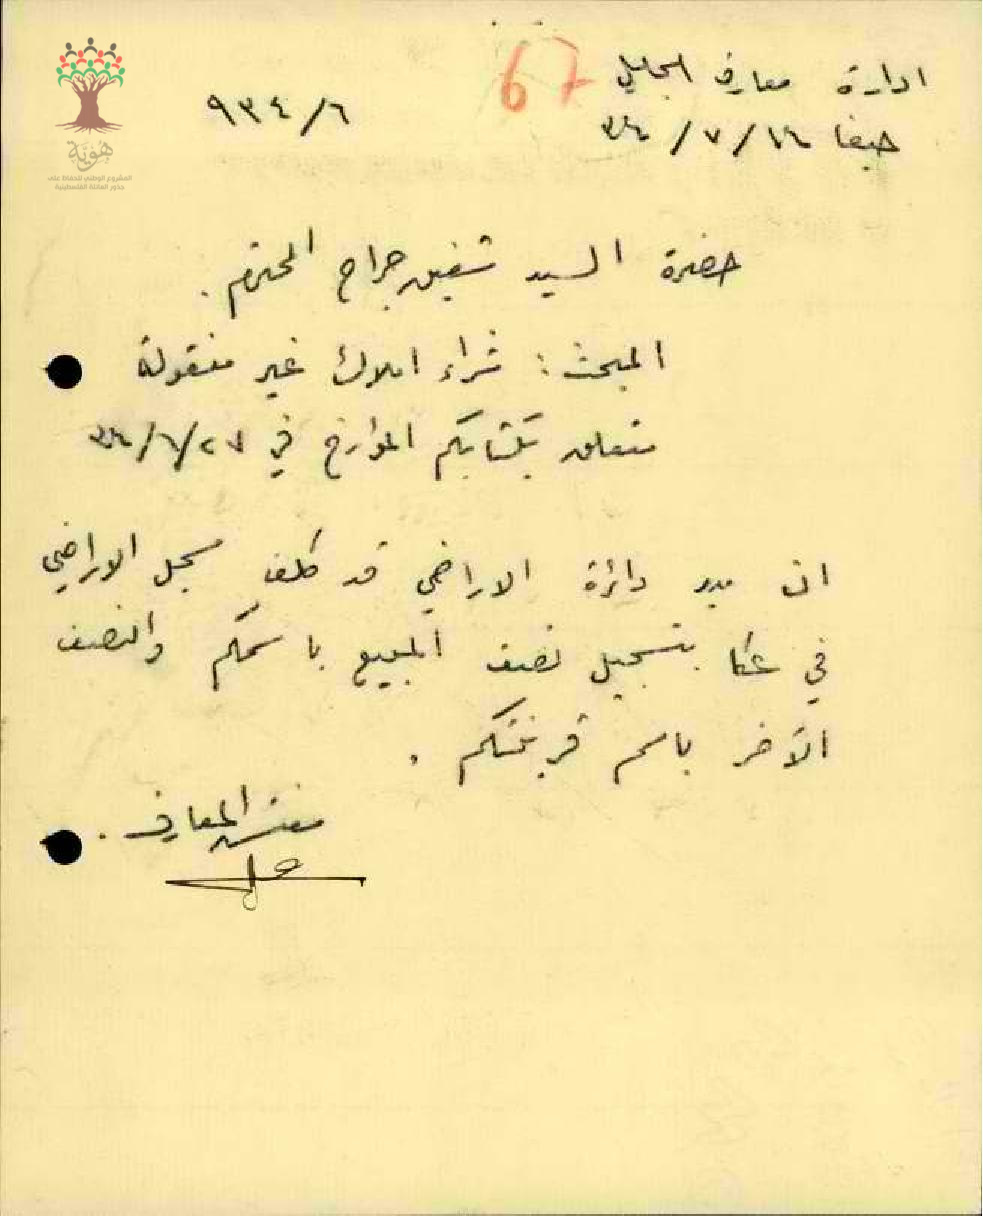 67
ادارة معارف الجليل
٦/٩٣٤
حيفا ١٦/٧/٣٤
هوية
المشروع الوطني للحفاظ على
جذور العائلة الفلسطينية
حضرة السيد شفيق جراح المحترم .
المبحث : شراء املاك غير منقولة
متعلق بكتابكم المؤرخ في ٢٧/٦/٣٤
ان مدير دائرة الاراضي قد كلف مسجل الاراضي
في عكا بتسجيل نصف المبيع باسمكم والنصف
الآخر باسم قرينتكم .
مفتش المعارف .